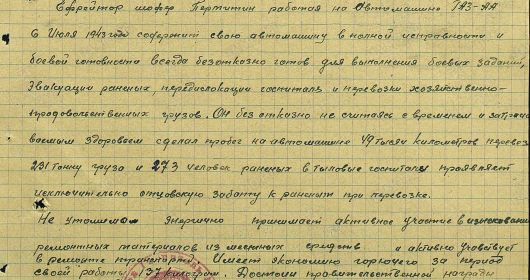 Ефрейтор шофер Пертитин работая на Автомашине ГАЗ-АА
с Июля 1943 года содержит свою автомашину в полной исправности и
боевой готовности всегда безотказно готов для выполнения боевых заданий,
Эвакуации раненых, передислокации госпиталя и перевозки хозяйственно-
продовольственных грузов. Он безотказно не считаясь с временем и
здоровьем сделал пробег на автомашине 49 тысяч километров перевез
231 тонну груза и 273 человек раненых в тыловые госпиталя проявляет
исключительно отцовскую заботу к раненым при перевозке.
Не утомимо энергично принимает активное участие в изыскании
ремонтных материалов из местных средств и активно участвует
в ремонте транспорта. Имеет экономию горючего за период
своей работы 137 килограм. Достоин правительственной награды